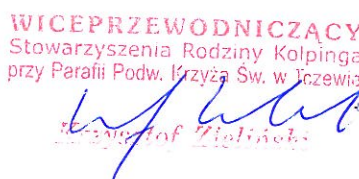 WICEPRZEWODNICZĄCY
Stowarzyszenia Rodziny Kolpinga
przy Parafii Podw. Krzyża Św. w Tczewie
Krzysztof Zieliński